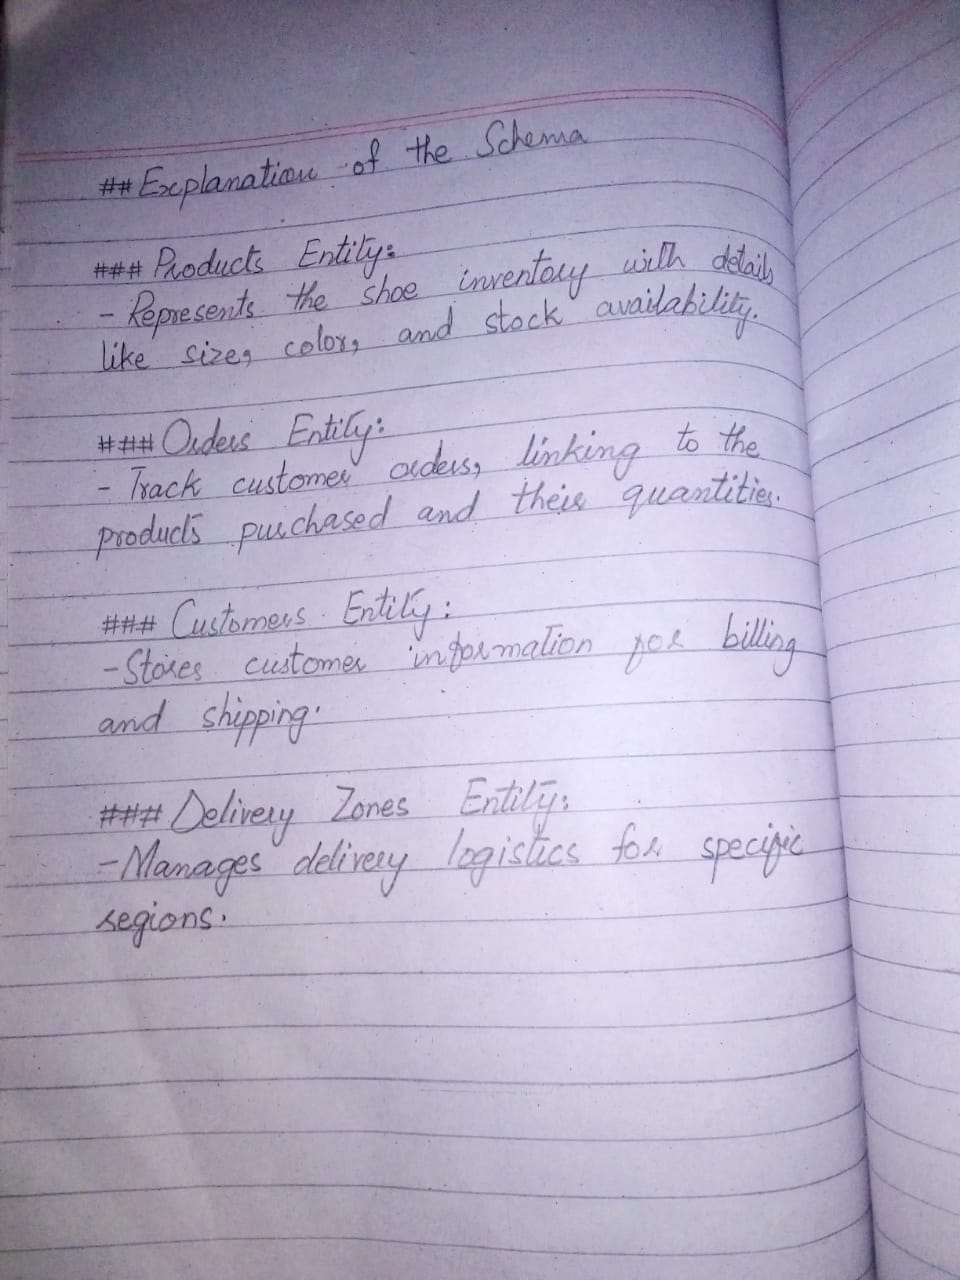 ## Explanation of the Schema
### Products Entity:
- Represents the shoe inventory with details
like size, color, and stock availability.
### Orders Entity:
- Track customer orders, linking to the
products purchased and their quantities.
### Customers Entity:
- Stores customer information for billing
and shipping.
### Delivery Zones Entity:
- Manages delivery logistics for specific
regions.